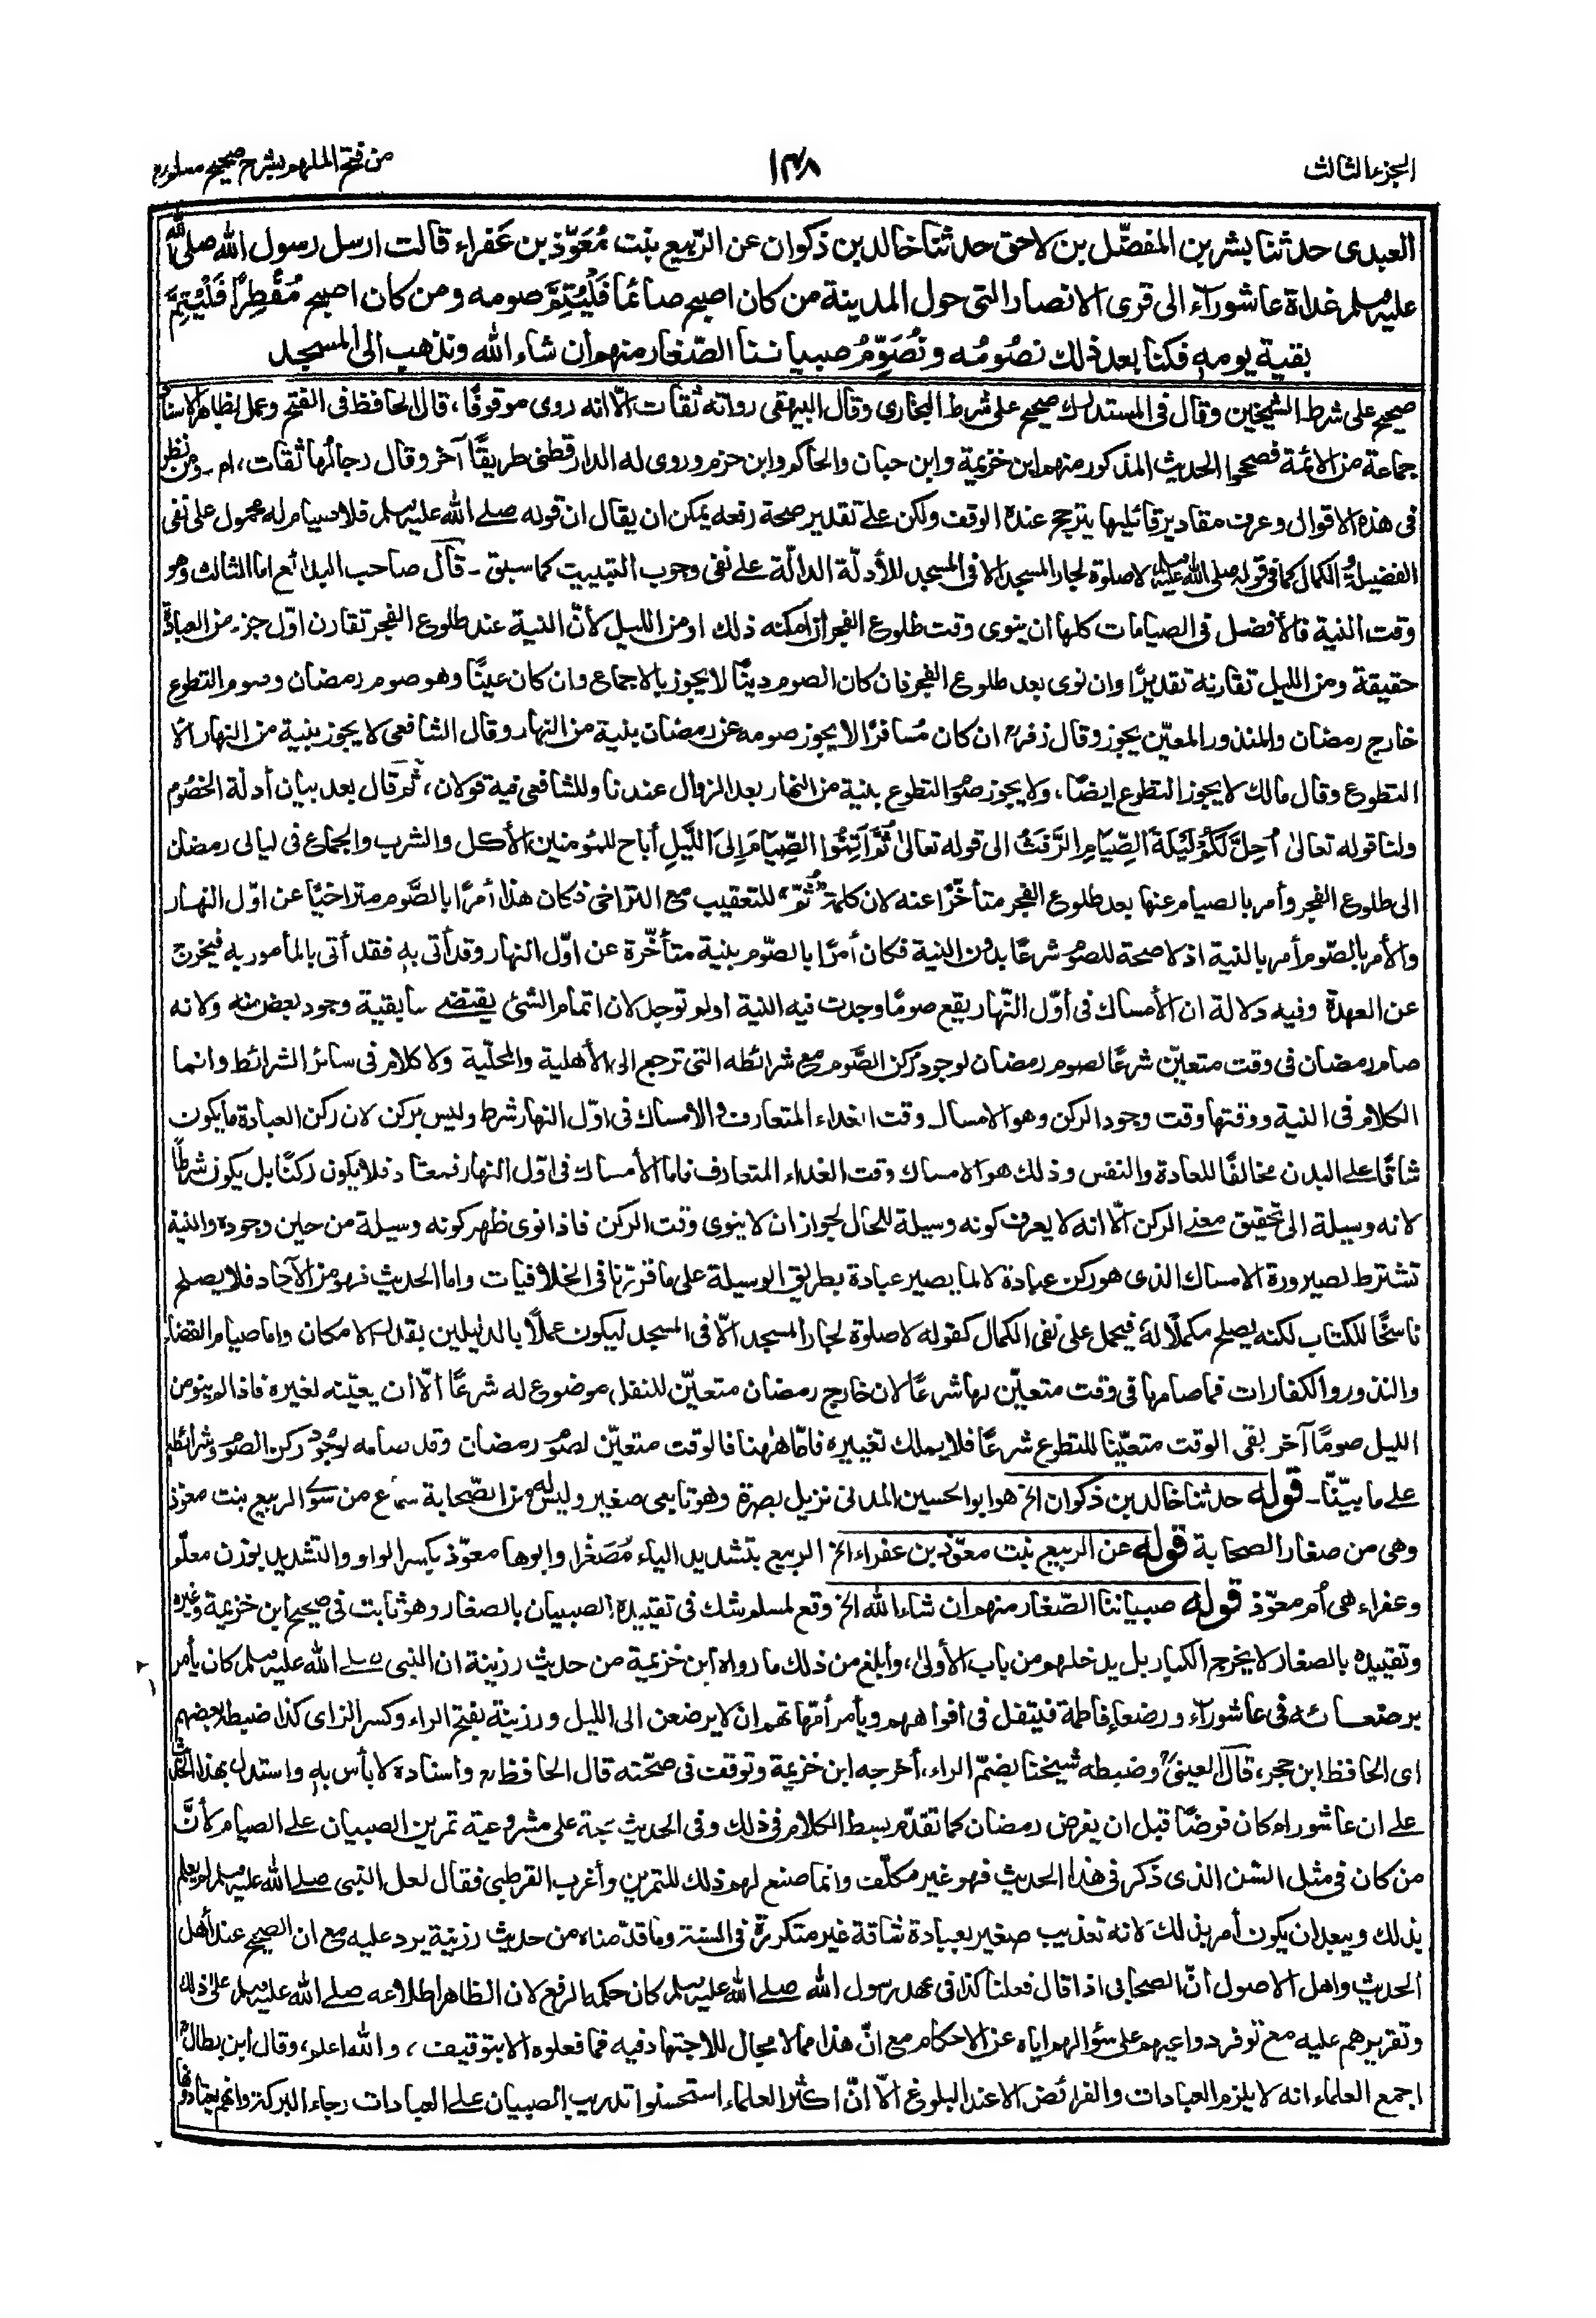 الجزء الثالث
١٤٨
من فتح الملهم بشرح صحيح مسلم
العبدى حدثنا بشر بن المفضّل بن لاحق حدثنا خالد بن ذكوان عن الرّبيع بنت مُعَوّذ بن عَفراء قالت ارسل رسول الله صلى الله
عليه وسلم غداة عاشوراء الى قرى الانصار التى حول المدينة من كان اصبح صائما فَلْيُتِمَّ صومه ومن كان اصبح مُفْطِرًا فَلْيُتِمَّ
بقية يومه فكنا بعد ذلك نصُومُه ونُصَوِّمُ صبياننا الصّغار منهم ان شاء الله ونذهب الى المسجد
صحيح على شرط الشيخين وقال فى المستدرك صحيح على شرط البخارى وقال البيهقى رواته ثقات الّا انه روى موقوفًا، قال الحافظ فى الفتح وعمل بظاهر الاسناد
جماعة من الائمة فصححوا الحديث المذكور منهم ابن خزيمة وابن حبان والحاكم وابن حزم وروى له الدارقطنى طريقًا آخر وقال رجالُها ثقات، اه ـ ومن نظر
فى هذه الاقوال وعرف مقادير قائليها يترجح عنده الوقف ولكن على تقدير صحة رفعه يمكن ان يقال ان قوله صلى الله عليه وسلم فلا صيام له محمول على نفى
الفضيلة والكمال كما فى قوله صلى الله عليه وسلم لا صلوة لجار المسجد الا فى المسجد للأدلّة الدالّة على نفى وجوب التبييت كما سبق ـ قال صاحب البدائع اما الثالث وهو
وقت النية فالأفضل فى الصيامات كلها ان ينوى وقت طلوع الفجر ان امكنه ذلك او من الليل لأنّ النية عند طلوع الفجر تقارن اوّل جزء من العبادة
حقيقة ومن الليل تقارنه تقديرًا وان نوى بعد طلوع الفجر فان كان الصوم دينًا لا يجوز بالاجماع وان كان عينًا وهو صوم رمضان وصوم التطوع
خارج رمضان والمنذور المعيّن يجوز وقال زفرؒ ان كان مُسافرًا لا يجوز صومه عن رمضان بنية من النهار وقال الشافعى لا يجوز بنية من النهار الا
التطوع وقال مالك لا يجوز التطوع ايضًا، ولا يجوز صوم التطوع بنية من النهار بعد الزوال عندنا وللشافعى فيه قولان، ثم قال بعد بيان أدلة الخصُوم
ولنا قوله تعالىٰ اُحِلَّ لَكُمْ لَيْلَةَ الصِّيَامِ الرَّفَثُ الى قوله تعالىٰ ثُمَّ اَتِمُّوا الصِّيَامَ اِلَى اللَّيْلِ أباح للمؤمنين الأكل والشرب والجماع فى ليالى رمضان
الى طلوع الفجر وأمر بالصيام عنها بعد طلوع الفجر متأخّرًا عنه لان كلمة "ثُمّ" للتعقيب مع التراخى فكان هذا أمرًا بالصَّوم متراخيًا عن اوّل النهار
والأمر بالصّوم أمر بالنية اذ لا صحة للصوم شرعًا بدون النية فكان أمرًا بالصّوم بنية متأخّرة عن اوّل النهار وقد أتى به فقد أتى بالمأمور به فيخرج
عن العهدة وفيه دلالة ان الأمساك فى أوّل النّهار يقع صومًا وجدت فيه النية اولم توجد لان اتمام الشئ يقتضى سابقية وجود بعض منه ولانه
صام رمضان فى وقت متعيّن شرعًا لصوم رمضان لوجود ركن الصَّوم مع شرائطه التى ترجع الى الأهلية والمحلّية ولا كلام فى سائر الشرائط وانما
الكلام فى النية ووقتها وقت وجود الركن وهو الامساك وقت الغداء المتعارف والامساك فى اوّل النهار شرط وليس بركن لان ركن العبادة ما يكون
شاقًا على البدن مخالفًا للعادة والنفس وذلك هو الامساك وقت الغداء المتعارف فاما الأمساك فى اوّل النهار فمعتاد فلا يكون ركنًا بل يكون شرطًا
لانه وسيلة الى تحقيق معنى الركن الّا انه لا يعرف كونه وسيلة للحال لجواز ان لا ينوى وقت الركن فاذا نوى ظهر كونه وسيلة من حين وجوده والنية
تشترط لصيرورة الامساك الذى هو ركن عبادة لا لما يصير عبادة بطريق الوسيلة على ما قررنا فى الخلافيات واما الحديث فهو من الآحاد فلا يصلح
ناسخًا للكتاب لكنه يصلح مكملًا له فيحمل على نفى الكمال كقوله لا صلوة لجار المسجد الّا فى المسجد ليكون عملًا بالدليلين بقدر الامكان واما صيام القضاء
والنذور والكفارات فما صامها فى وقت متعيّن لها شرعًا لان خارج رمضان متعيّن للنفل موضوع له شرعًا الّا أن يعيّنه لغيره فاذا لم ينو من
الليل صومًا آخر بقى الوقت متعيّنا للتطوع شرعًا فلا يملك تغييره فامّا هٰهنا فالوقت متعيّن لصوم رمضان وقد صامه لوجُود ركن الصوم وشرائطه
على ما بيّنّا ـ قوله حدثنا خالد بن ذكوان الخ هو ابو الحسين المدنى نزيل بصرة وهو تابعى صغير وليس له من الصّحابة سماع من سوى الربيع بنت معوّذ
وهى من صغار الصحابة قوله عن الربيع بنت معوّذ بن عفراء الخ الربيع بتشديد الياء مُصَغّرا وابوها معوّذ بكسر الواو والتشديد بوزن معلّم
وعفراء هى أم معوّذ قوله صبياننا الصّغار منهم ان شاء الله الخ وقع لمسلم شك فى تقييده الصبيان بالصغار وهو ثابت فى صحيح ابن خزيمة وغيره
وتقييده بالصغار لا يخرج الكبار بل يدخلهم من باب الأولىٰ، وأبلغ من ذلك ما رواه ابن خزيمة من حديث رزينة ان النبى صلى الله عليه وسلم كان يأمر
برضعائه فى عاشوراء ورضعاء فاطمة فيتفل فى افواههم ويأمر أمّهاتهم ان لا يرضعن الى الليل ورزينة بفتح الراء وكسر الزاى كذا ضبطه بعضهم
اى الحافظ ابن حجر، قال العينىؒ وضبطه شيخنا بضمّ الراء، أخرجه ابن خزيمة وتوقف فى صحّته قال الحافظؒ واسناده لا بأس به واستدل بهذا الحديث
على ان عاشوراء كان فرضًا قبل ان يفرض رمضان كما تقدّم بسط الكلام فى ذلك وفى الحديث حجة على مشروعية تمرين الصبيان على الصيام لأنَّ
من كان فى مثل السّن الذى ذكر فى هذا الحديث فهو غير مكلّف وانما صنع لهم ذلك للتمرين وأغرب القرطبى فقال لعل النبى صلى الله عليه وسلم لم يعلم
بذلك ويبعد ان يكون أمر بذلك لانه تعذيب صغير بعبادة شاقة غير متكررة فى السنة وما قدّمناه من حديث رزينة يرد عليه مع ان الصحيح عند أهل
الحديث واهل الاصول انّ الصحابى اذا قال فعلنا كذا فى عهد رسول الله صلى الله عليه وسلم كان حكمه الرفع لان الظاهر اطلاعه صلى الله عليه وسلم على ذلك
وتقريرهم عليه مع توفر دواعيهم على سؤالهم اياه عن الاحكام مع انّ هذا مما لا مجال للاجتهاد فيه فما فعلوه الا بتوقيف، والله اعلم، وقال ابن بطالؒ
اجمع العلماء انه لا يلزم العبادات والفرائض الا عند البلوغ الّا انّ اكثر العلماء استحسنوا تدريب الصبيان على العبادات رجاء البركة وانهم يعتادونها